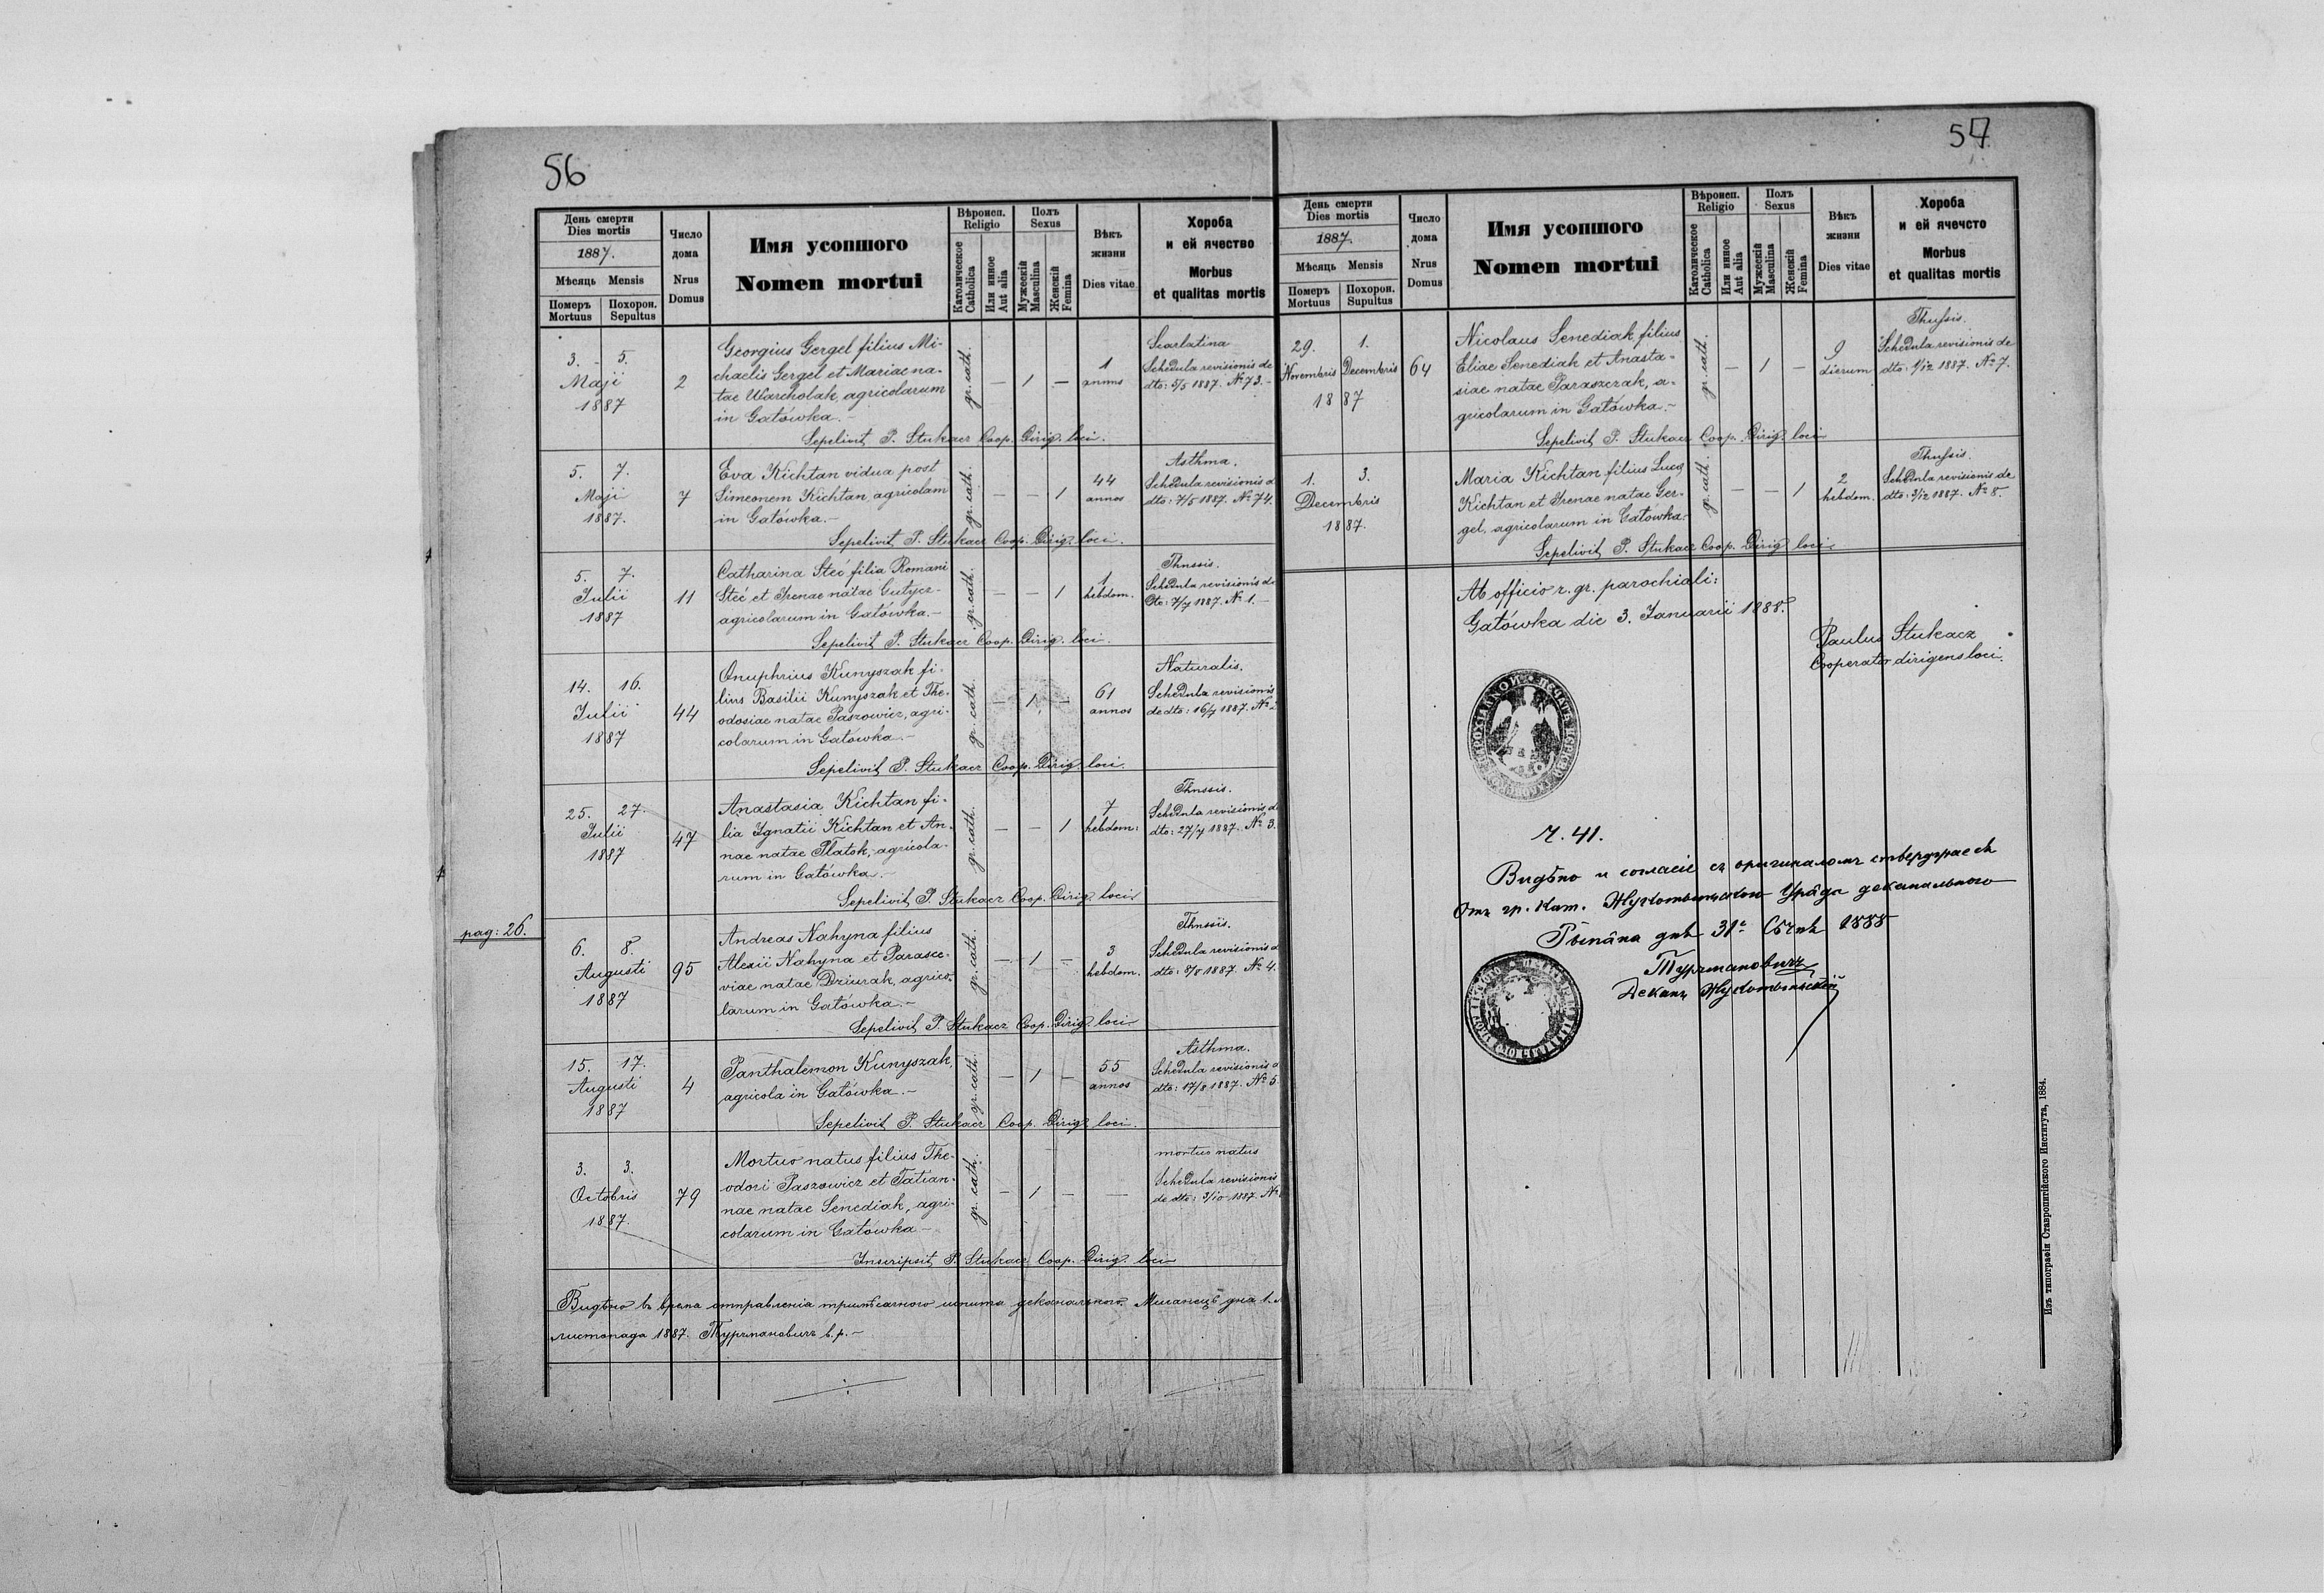 56
День смерти
Dies mortis
1887.
Мѣсяць Mensis
Померъ Похорон.
Mortuus Sepultus
Число
дома
Nrus
Domus
Имя усопшого
Nomen mortui
Вѣроисп.
Religio
Католическое
Catholica
Или инное
Aut alia
Полъ
Sexus
Мужескій
Masculina
Женскій
Femina
Вѣкъ
жизни
Dies vitae
Хороба
и ей ячество
Morbus
et qualitas mortis
3. - 5.
Maji
1887
2
Georgius Gergel filius Mi-
chaelis Gergel et Mariae na-
tae Warcholak, agricolarum
in Gatówka.-
gr. cath.
— 1 —
1
annus
Scarlatina
Schedula revisionis de
dto: 5/5 1887. № 73.-
Sepelivit P. Stukacz Coop. Dirig. loci.
5. 7.
Maji
1887.
7
Eva Kichtan vidua post
Simeonem Kichtan, agricolam
in Gatówka.-
gr. cath.
— — 1
44
annos
Asthma.
Schedula revisionis d
dto: 7/5 1887. № 74.
Sepelivit P. Stukacz Coop. Dirig. loci.
5. 7.
Julii
1887
11
Catharina Steć filia Romani
Steć et Irenae natae Gutycz-
agricolarum in Gatówka.-
gr. cath.
— — 1
1
hebdom.
Thussis.
Schedula revisionis de
dto: 7/7 1887. № 1.-
Sepelivit P. Stukacz Coop. Dirig. loci.
14. 16.
Julii
1887
44
Onuphrius Kunyszak fi-
lius Basilii Kunyszak et The-
odosiae natae Paszowicz, agri-
colarum in Gatówka.-
gr. cath.
— 1. —
61
annos
Naturalis.
Schedula revisionis
de dto: 16/7 1887. № 2
Sepelivit P. Stukacz Coop. Dirig. loci.
25. 27.
Julii
1887
47
Anastasia Kichtan fi-
lia Ignatii Kichtan et An-
nae natae Płatok, agricola-
rum in Gatówka.-
gr. cath.
— — 1
7
hebdom:
Thussis.
Schedula revisionis d
dto: 27/7 1887. № 3.
Sepelivit P. Stukacz Coop. Dirig. loci
pag: 26.
6. 8.
Augusti
1887
95
Andreas Nahyna filius
Alexii Nahyna et Parasce-
viae natae Dziurak, agrico-
larum in Gatówka.-
gr. cath.
— 1 —
3
hebdom.
Thussis.
Schedula revisionis d
dto: 8/8 1887. № 4.
Sepelivit P. Stukacz Coop. Dirig. loci
15. 17.
Augusti
1887
4
Panthalemon Kunyszak,
agricola in Gatówka.-
gr. cath.
— 1 —
55
annos
Asthma.
Schedula revisionis d
dto: 17/8 1887. № 5.
Sepelivit P. Stukacz Coop. Dirig. loci.
3. 3.
Octobris
1887.
79
Mortuo natus filius The-
odori Paszowicz et Tatian-
nae natae Senediak, agri-
colarum in Gatówka-
gr. cath.
— 1 — —
mortuo natus
Schedula revisionis
de dto: 3/10 1887. №
Inscripsit P. Stukacz Coop. Dirig. loci
Видѣно въ время отправленія тримѣсячного испита деканального. Миланець дня 1.
листопада 1887. Турчмановичъ в.р.-
57
День смерти
Dies mortis
1887.
Мѣсяць Mensis
Померъ Похорон.
Mortuus Supultus
Число
дома
Nrus
Domus
Имя усопшого
Nomen mortui
Вѣроисп.
Religio
Католическое
Catholica
Или инное
Aut alia
Полъ
Sexus
Мужескій
Masculina
Женскій
Femina
Вѣкъ
жизни
Dies vitae
Хороба
и ей ячечсто
Morbus
et qualitas mortis
29. 1.
Novembris Decembris
1887
64
Nicolaus Senediak filius
Eliae Senediak et Anasta-
siae natae Paraszczak, a-
gricolarum in Gatówka.-
gr. cath.
— 1 —
9
dierum
Thussis.
Schedula revisionis de
dto: 1/12 1887. № 7.
Sepelivit P. Stukacz Coop. Dirig. loci
1. 3.
Decembris
1887.
Maria Kichtan filius Lucae
Kichtan et Irenae natae Ger-
gel, agricolarum in Gatówka.-
gr. cath.
— — 1
2
hebdom.
Thussis.
Schedula revisionis de
dto: 3/12 1887. № 8.
Sepelivit P. Stukacz Coop. Dirig. loci
Ab officio r. gr. parochiali:
Gatówka die 3. Januarii 1888.
Paulus Stukacz
Cooperator dirigens loci.
Ч. 41.
Видѣно и согласіе съ оригиналомъ стверджаесь
Отъ гр. кат. Уряда деканального
днѣ 31го Сѣчнѣ 1888
Деканъ
Изъ типографіи Ставропигійского Института, 1884.